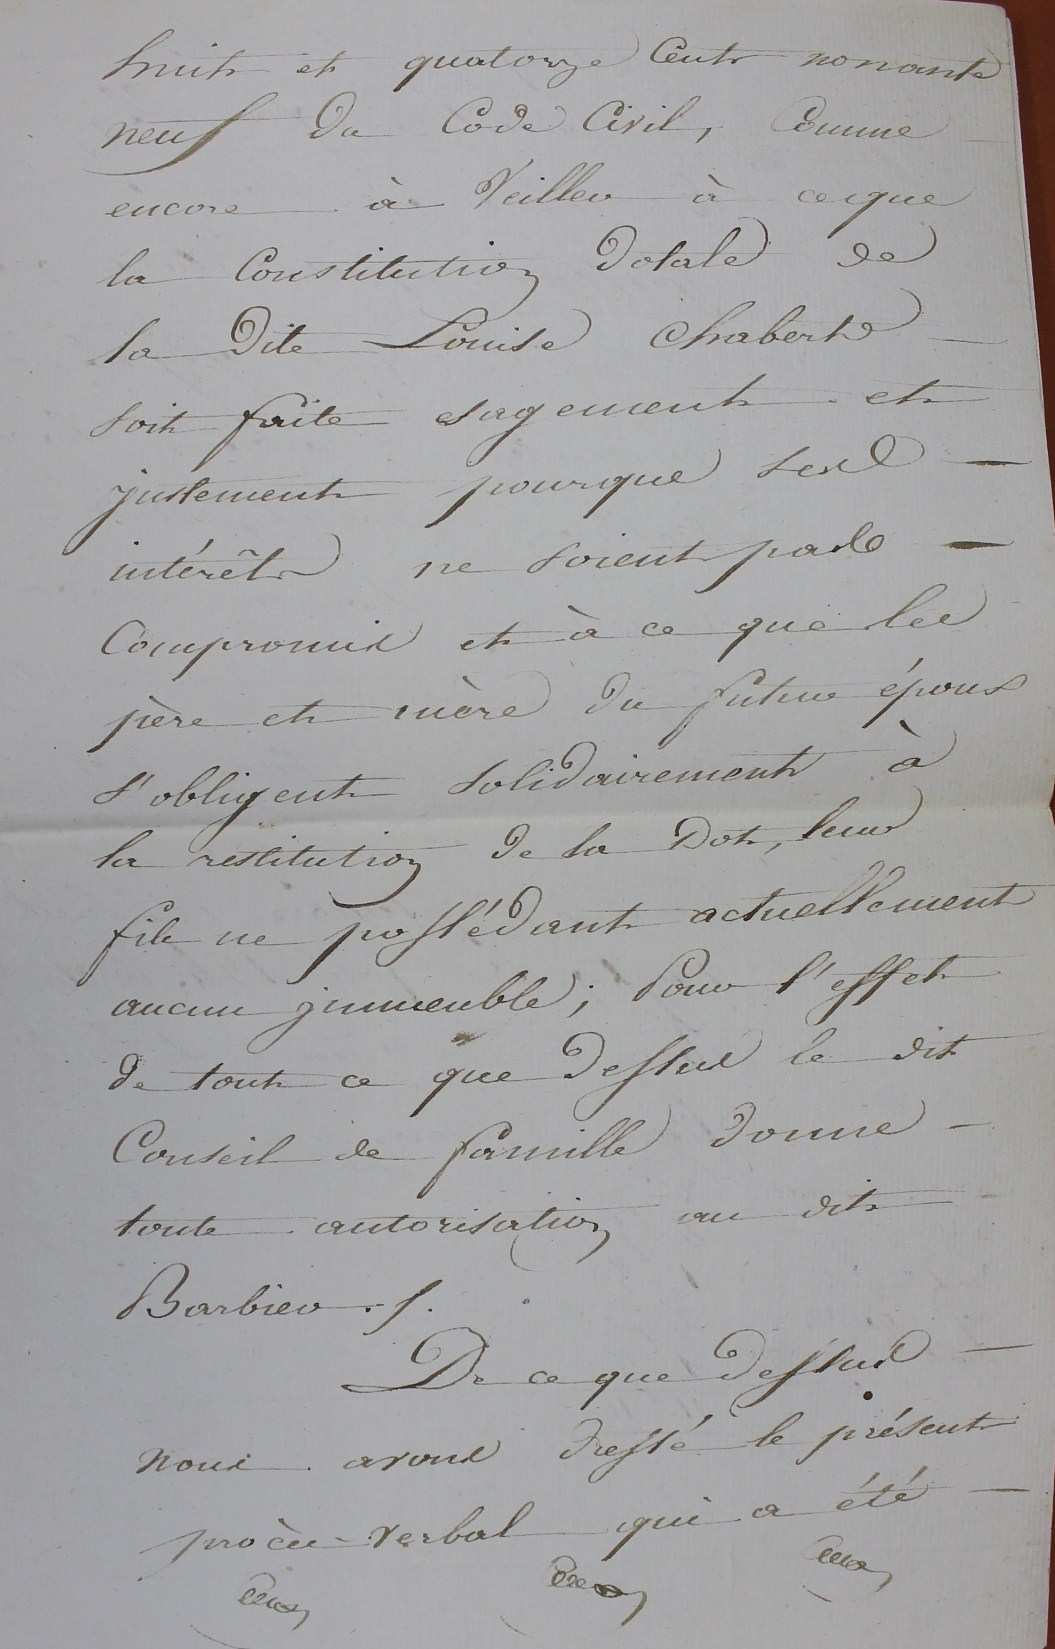 huit et quatorze Cents nonante
neuf du Code Civil, Comme
encore à Veiller à ce que
la Constitution dotale de
la dite Louise Chabert
soit faite sagement et
justement pour que ses
intérêts ne soient pas
Compromis et à ce que les
père et mère du futur époux
s'obligent solidairement à
la restitution de la Dot, leur
fils ne possédant actuellement
aucun jmmeuble; Pour l'effet
de tout ce que dessus le dit
Conseil de famille donne
toute autorisation au dit
Barbier./.
De ce que dessus
nous avons dressé le présent
procès-verbal qui a été